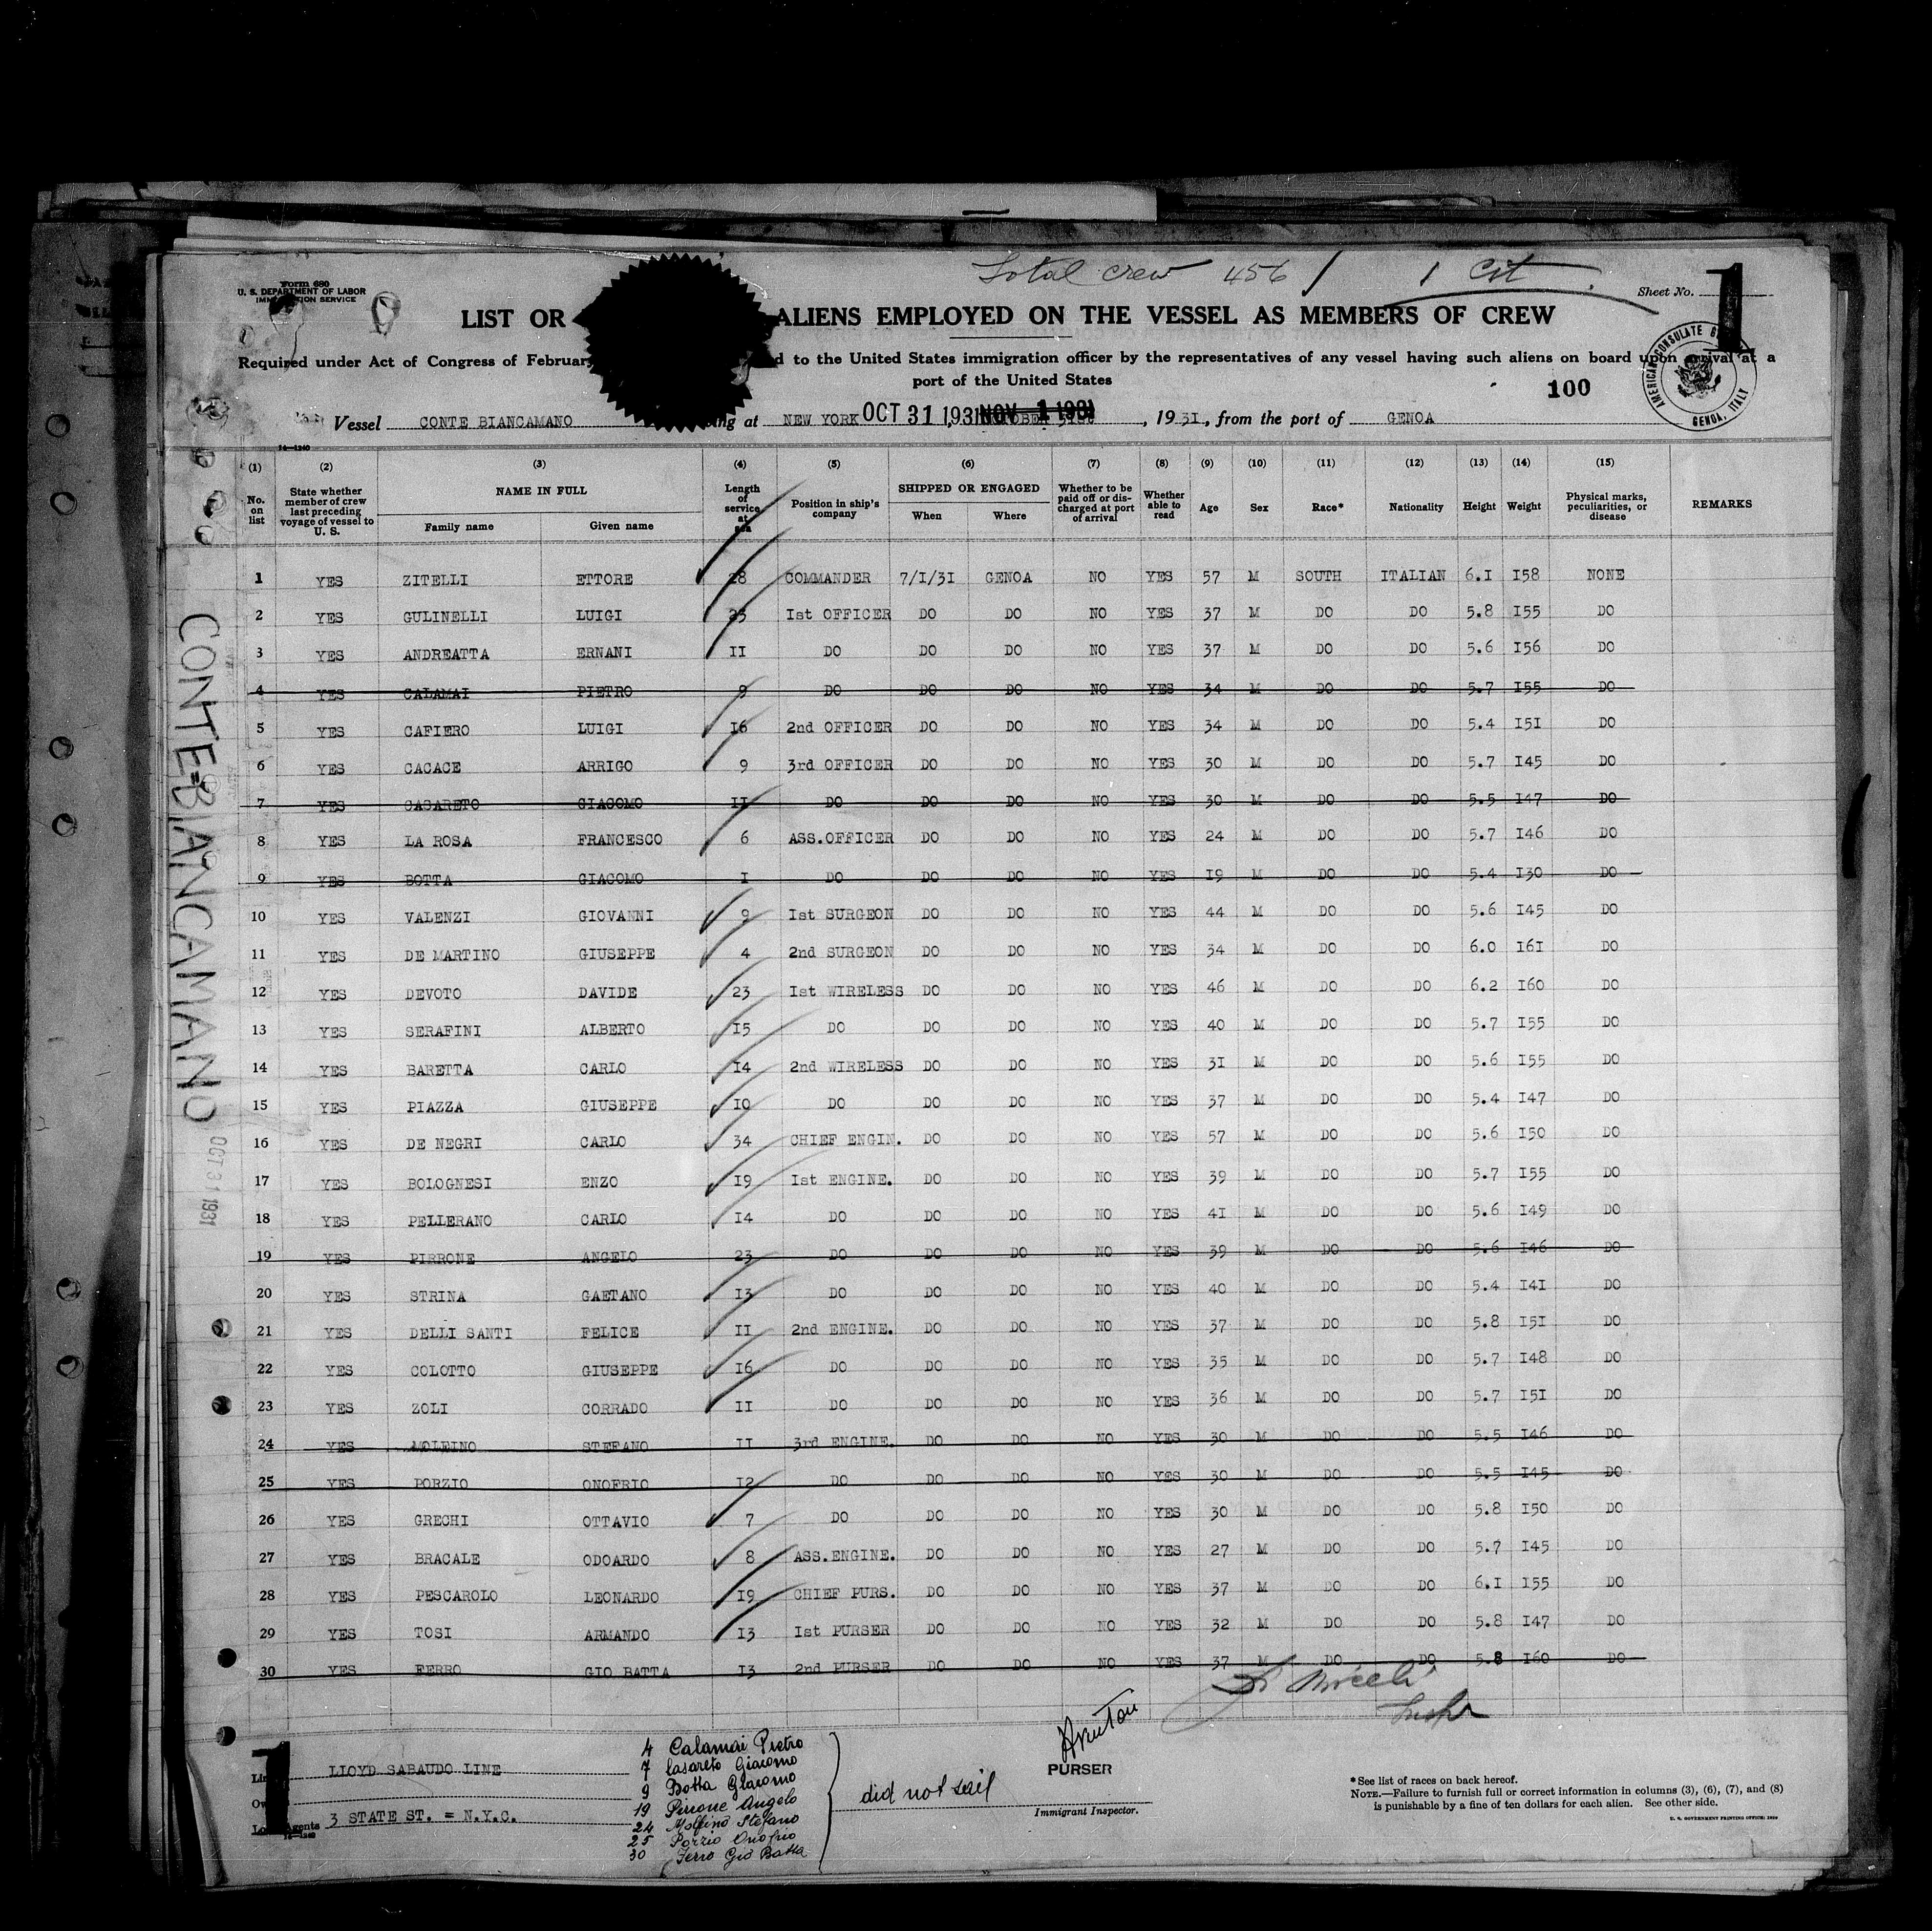 Total Crew 456 / 1 Cit
Form 680
U. S. DEPARTMENT OF LABOR
IMMIGRATION SERVICE
Sheet No. 1
LIST OR ALIENS EMPLOYED ON THE VESSEL AS MEMBERS OF CREW
Required under Act of Congress of February d to the United States immigration officer by the representatives of any vessel having such aliens on board upon arrival at a
port of the United States
100
AMERICAN CONSULATE GENOA, ITALY
Vessel CONTE BIANCAMANO ing at NEW YORK OCT 31 1931 NOV 1 1931 , 1931, from the port of GENOA
(1) (2) (3) (4) (5) (6) (7) (8) (9) (10) (11) (12) (13) (14) (15)
No. on list State whether member of crew last preceding voyage of vessel to U. S. NAME IN FULL Family name Given name Length of service at sea Position in ship's company SHIPPED OR ENGAGED When Where Whether to be paid off or discharged at port of arrival Whether able to read Age Sex Race* Nationality Height Weight Physical marks, peculiarities, or disease REMARKS
1 YES ZITELLI ETTORE 28 COMMANDER 7/I/3I GENOA NO YES 57 M SOUTH ITALIAN 6.I I58 NONE
2 YES GULINELLI LUIGI 23 Ist OFFICER DO DO NO YES 37 M DO DO 5.8 I55 DO
3 YES ANDREATTA ERNANI II DO DO DO NO YES 37 M DO DO 5.6 I56 DO
4 YES CALAMAI PIETRO 9 DO DO DO NO YES 34 M DO DO 5.7 I55 DO
5 YES CAFIERO LUIGI I6 2nd OFFICER DO DO NO YES 34 M DO DO 5.4 I5I DO
6 YES CACACE ARRIGO 9 3rd OFFICER DO DO NO YES 30 M DO DO 5.7 I45 DO
7 YES CASARETO GIACOMO II DO DO DO NO YES 30 M DO DO 5.5 I47 DO
8 YES LA ROSA FRANCESCO 6 ASS.OFFICER DO DO NO YES 24 M DO DO 5.7 I46 DO
9 YES BOTTA GIACOMO I DO DO DO NO YES I9 M DO DO 5.4 I30 DO
10 YES VALENZI GIOVANNI 9 Ist SURGEON DO DO NO YES 44 M DO DO 5.6 I45 DO
11 YES DE MARTINO GIUSEPPE 4 2nd SURGEON DO DO NO YES 34 M DO DO 6.0 I6I DO
12 YES DEVOTO DAVIDE 23 Ist WIRELESS DO DO NO YES 46 M DO DO 6.2 I60 DO
13 YES SERAFINI ALBERTO I5 DO DO DO NO YES 40 M DO DO 5.7 I55 DO
14 YES BARETTA CARLO I4 2nd WIRELESS DO DO NO YES 3I M DO DO 5.6 I55 DO
15 YES PIAZZA GIUSEPPE I0 DO DO DO NO YES 37 M DO DO 5.4 I47 DO
16 YES DE NEGRI CARLO 34 CHIEF ENGIN. DO DO NO YES 57 M DO DO 5.6 I50 DO
17 YES BOLOGNESI ENZO I9 Ist ENGINE. DO DO NO YES 39 M DO DO 5.7 I55 DO
18 YES PELLERANO CARLO I4 DO DO DO NO YES 4I M DO DO 5.6 I49 DO
19 YES PIRRONE ANGELO 23 DO DO DO NO YES 39 M DO DO 5.6 I46 DO
20 YES STRINA GAETANO I3 DO DO DO NO YES 40 M DO DO 5.4 I4I DO
21 YES DELLI SANTI FELICE II 2nd ENGINE. DO DO NO YES 37 M DO DO 5.8 I5I DO
22 YES COLOTTO GIUSEPPE I6 DO DO DO NO YES 35 M DO DO 5.7 I48 DO
23 YES ZOLI CORRADO II DO DO DO NO YES 36 M DO DO 5.7 I5I DO
24 YES MOLFINO STEFANO II 3rd ENGINE. DO DO NO YES 30 M DO DO 5.5 I46 DO
25 YES PORZIO ONOFRIO I2 DO DO DO NO YES 30 M DO DO 5.5 I45 DO
26 YES GRECHI OTTAVIO 7 DO DO DO NO YES 30 M DO DO 5.8 I50 DO
27 YES BRACALE ODOARDO 8 ASS.ENGINE. DO DO NO YES 27 M DO DO 5.7 I45 DO
28 YES PESCAROLO LEONARDO I9 CHIEF PURS. DO DO NO YES 37 M DO DO 6.I I55 DO
29 YES TOSI ARMANDO I3 Ist PURSER DO DO NO YES 32 M DO DO 5.8 I47 DO
30 YES FERRO GIO BATTA I3 2nd PURSER DO DO NO YES 37 M DO DO 5.8 I60 DO
CONTE=BIANCAMANO
OCT 31 1931
LLOYD SABAUDO LINE
3 STATE ST. = N.Y.C.
Agents
1
4 Calamai Pietro
7 Casareto Giacomo
9 Botta Giacomo
19 Pirrone Angelo
24 Molfino Stefano
25 Porzio Onofrio
30 Ferro Gio Batta
did not sail
PURSER
Immigrant Inspector.
*See list of races on back hereof.
NOTE.—Failure to furnish full or correct information in columns (3), (6), (7), and (8)
is punishable by a fine of ten dollars for each alien. See other side.